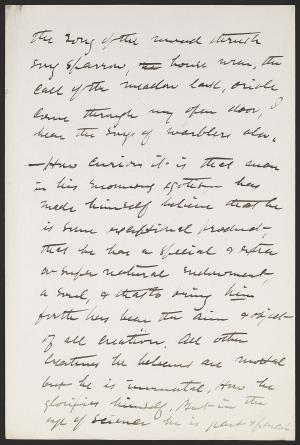 the song of the wood thrush
song sparrow, the house wren, the
call of the meadow lark, oriole
come through my open door, I
hear the songs of warblers also.
— How curious it is that man
in his enormous egotism has
made himself believe that he
is some exceptional product,
that he has a special & extra
or super natural endowment,
a soul, & that to bring him
forth has been the aim & object
of all creation. All other
creatures he believes are mortal
but he is immortal, How he
glorifies himself. But in the
eye of science he is part & parcel